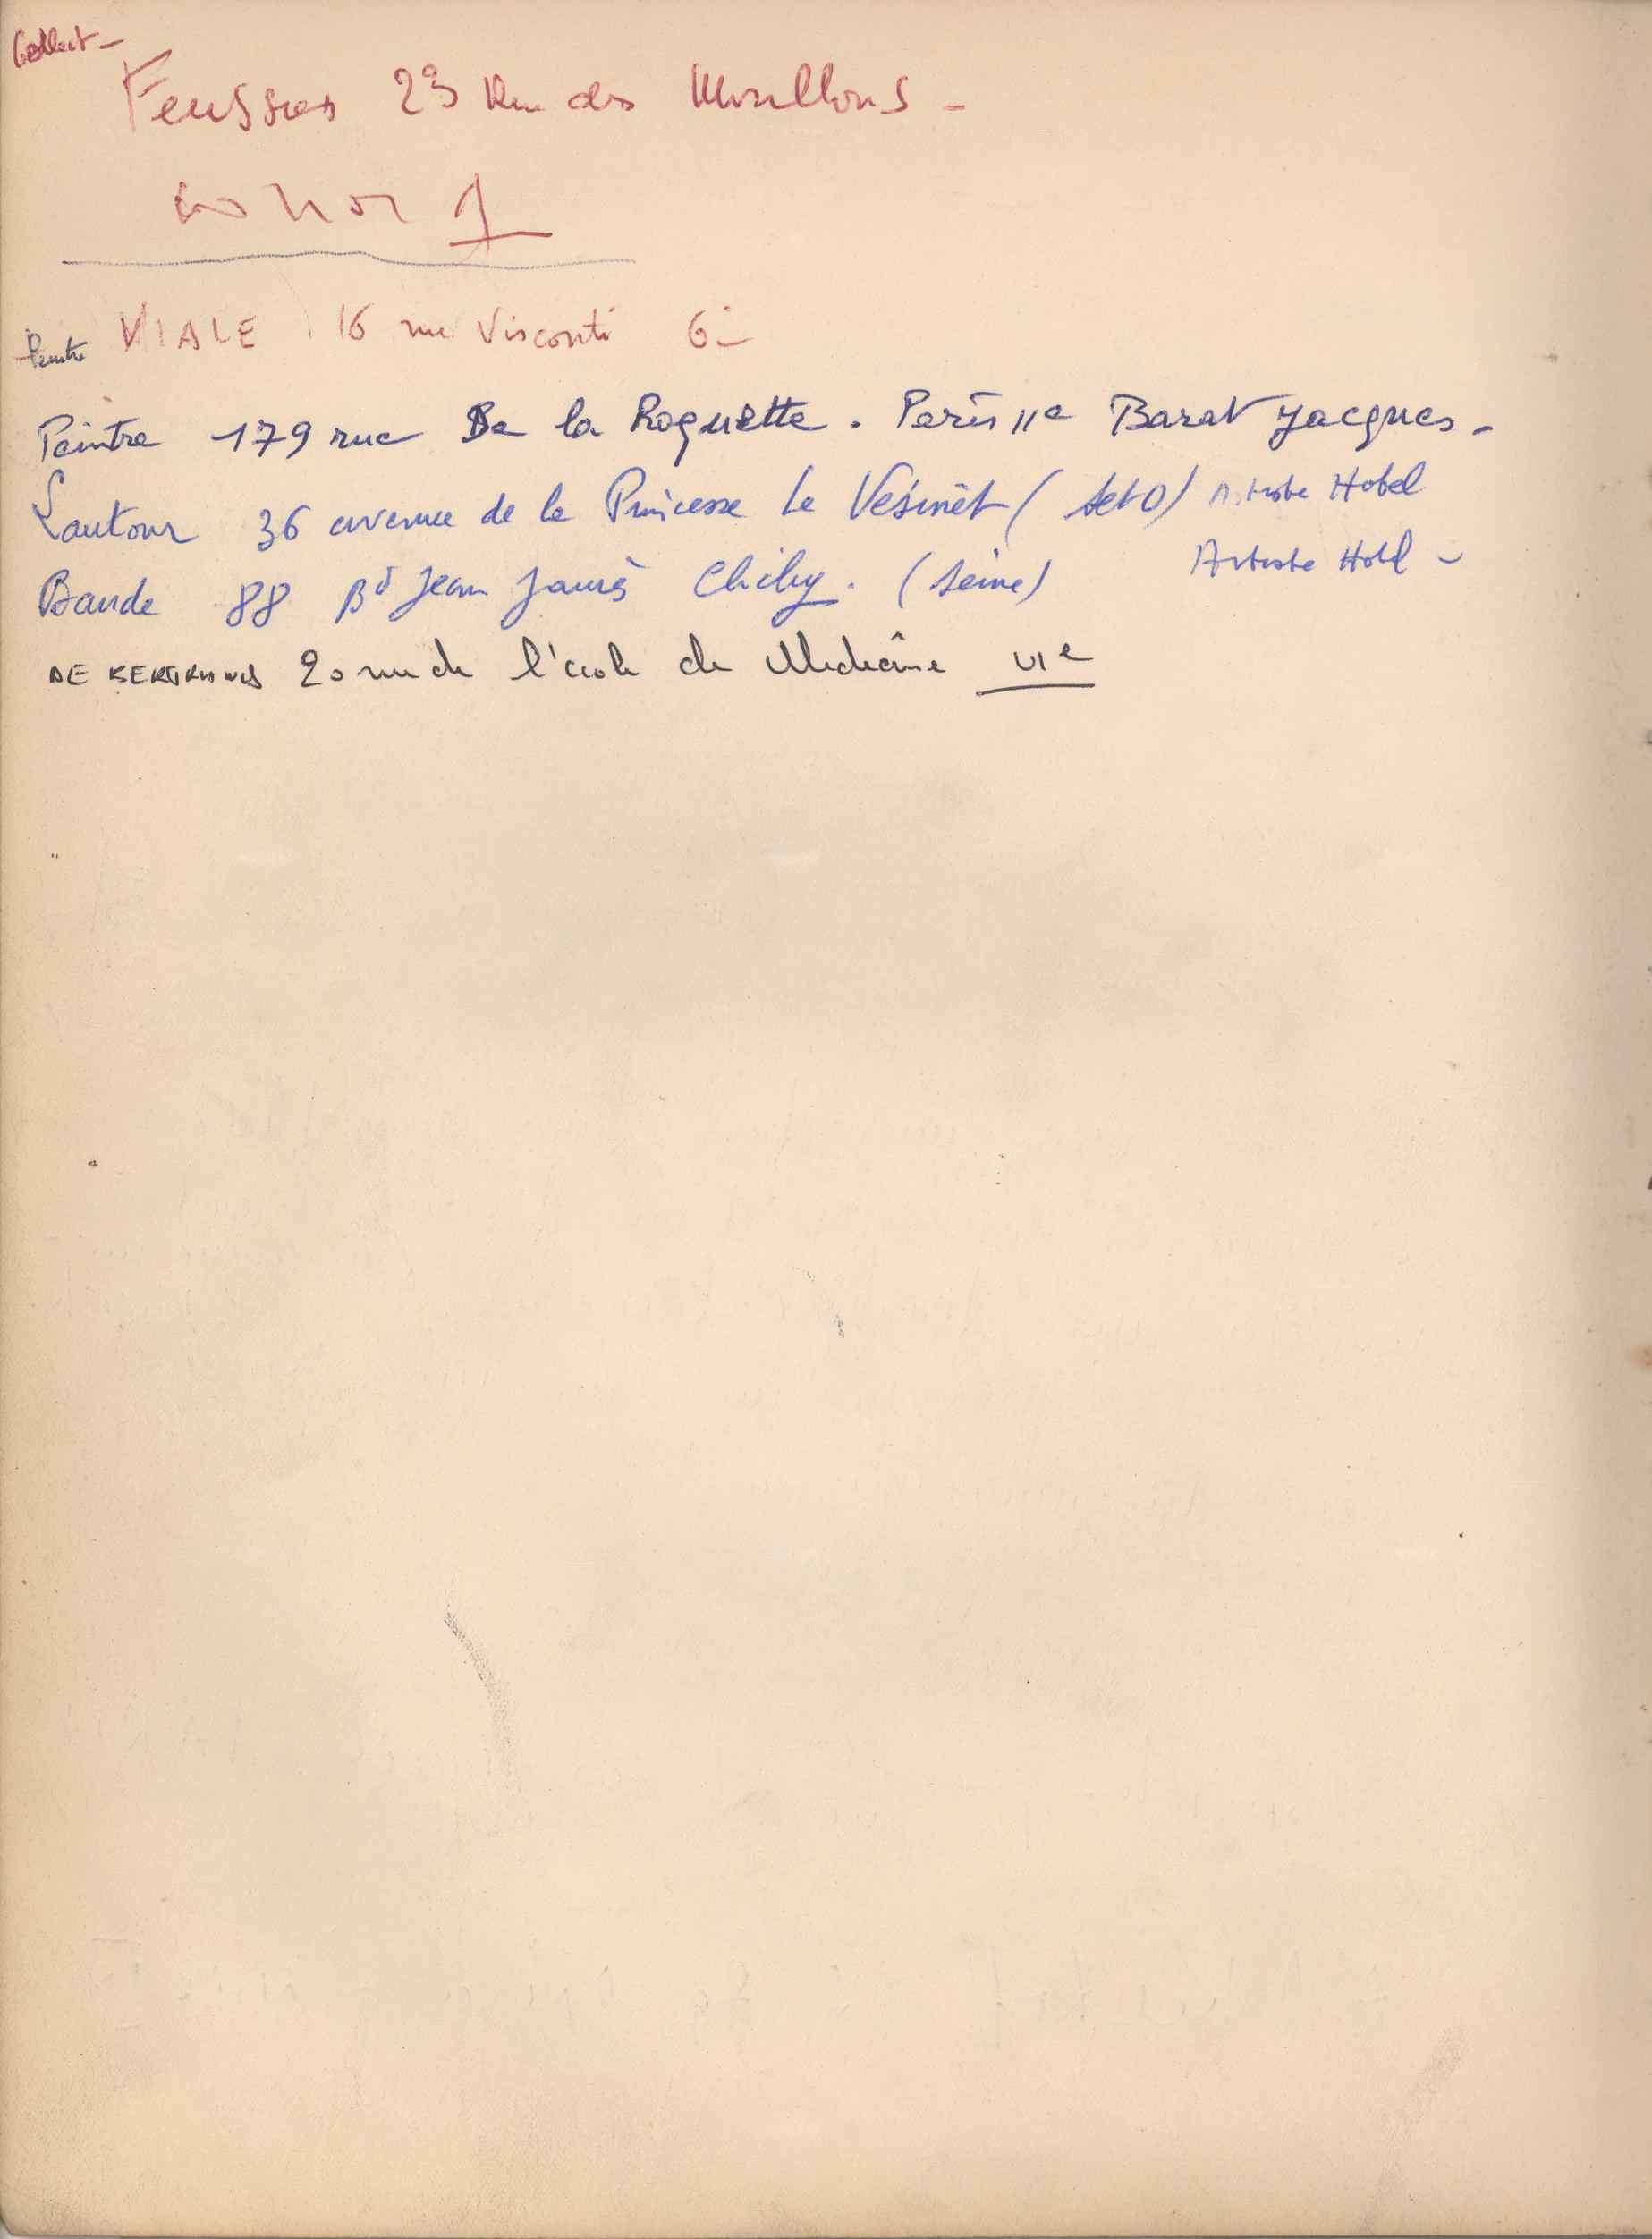 Collect -
23 Rue des Morillons -
1
Peintre VIALE 16 rue Visconti 6e
Peintre 179 rue De la Roquette. Paris 11e Barat Jacques -
Lautour 36 avenue de la Princesse Le Vésinet (S et O) Artiste Hotel
Baude 88 Bd Jean Jaurès Clichy. (Seine) Artiste Hotel -
DE 20 rue de l'école de Medecine VIe